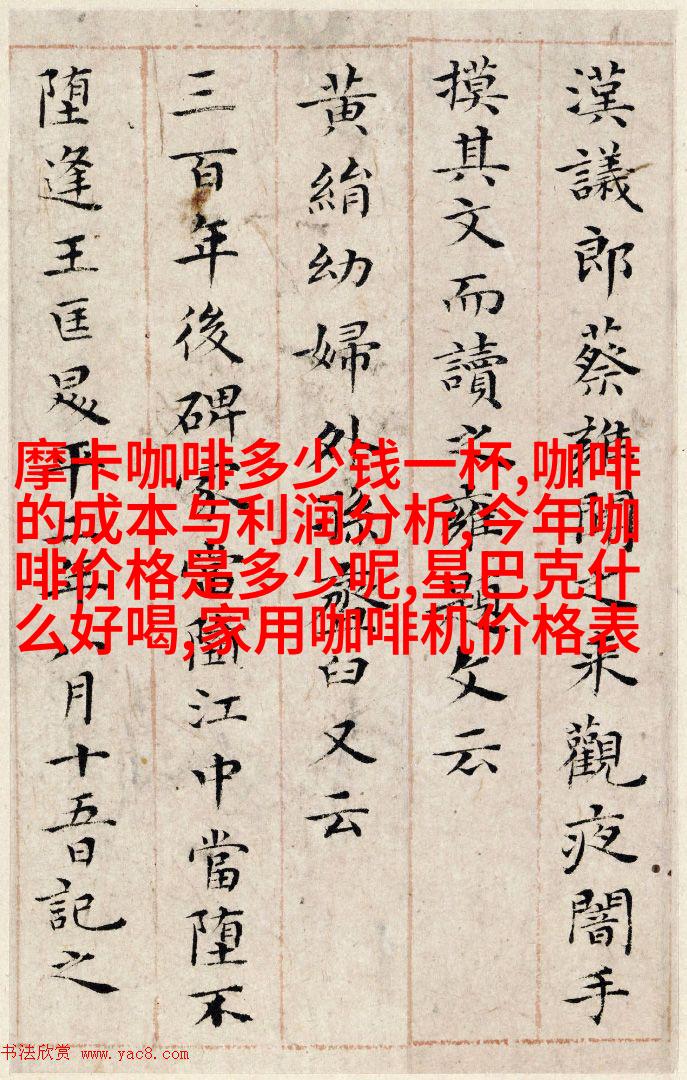 漢議郎蔡雍聞之来觀夜闇手
摸其文而讀之雍題文云
黄絹幼婦外孫齏臼又云
三百年後碑冢當墮江中當堕不
堕逢王匡昇平二年八月十五日記之
摩卡咖啡多少钱一杯,咖啡
的成本与利润分析,今年咖
啡价格是多少呢,星巴克什
么好喝,家用咖啡机价格表
书法欣赏 www.yac8.com